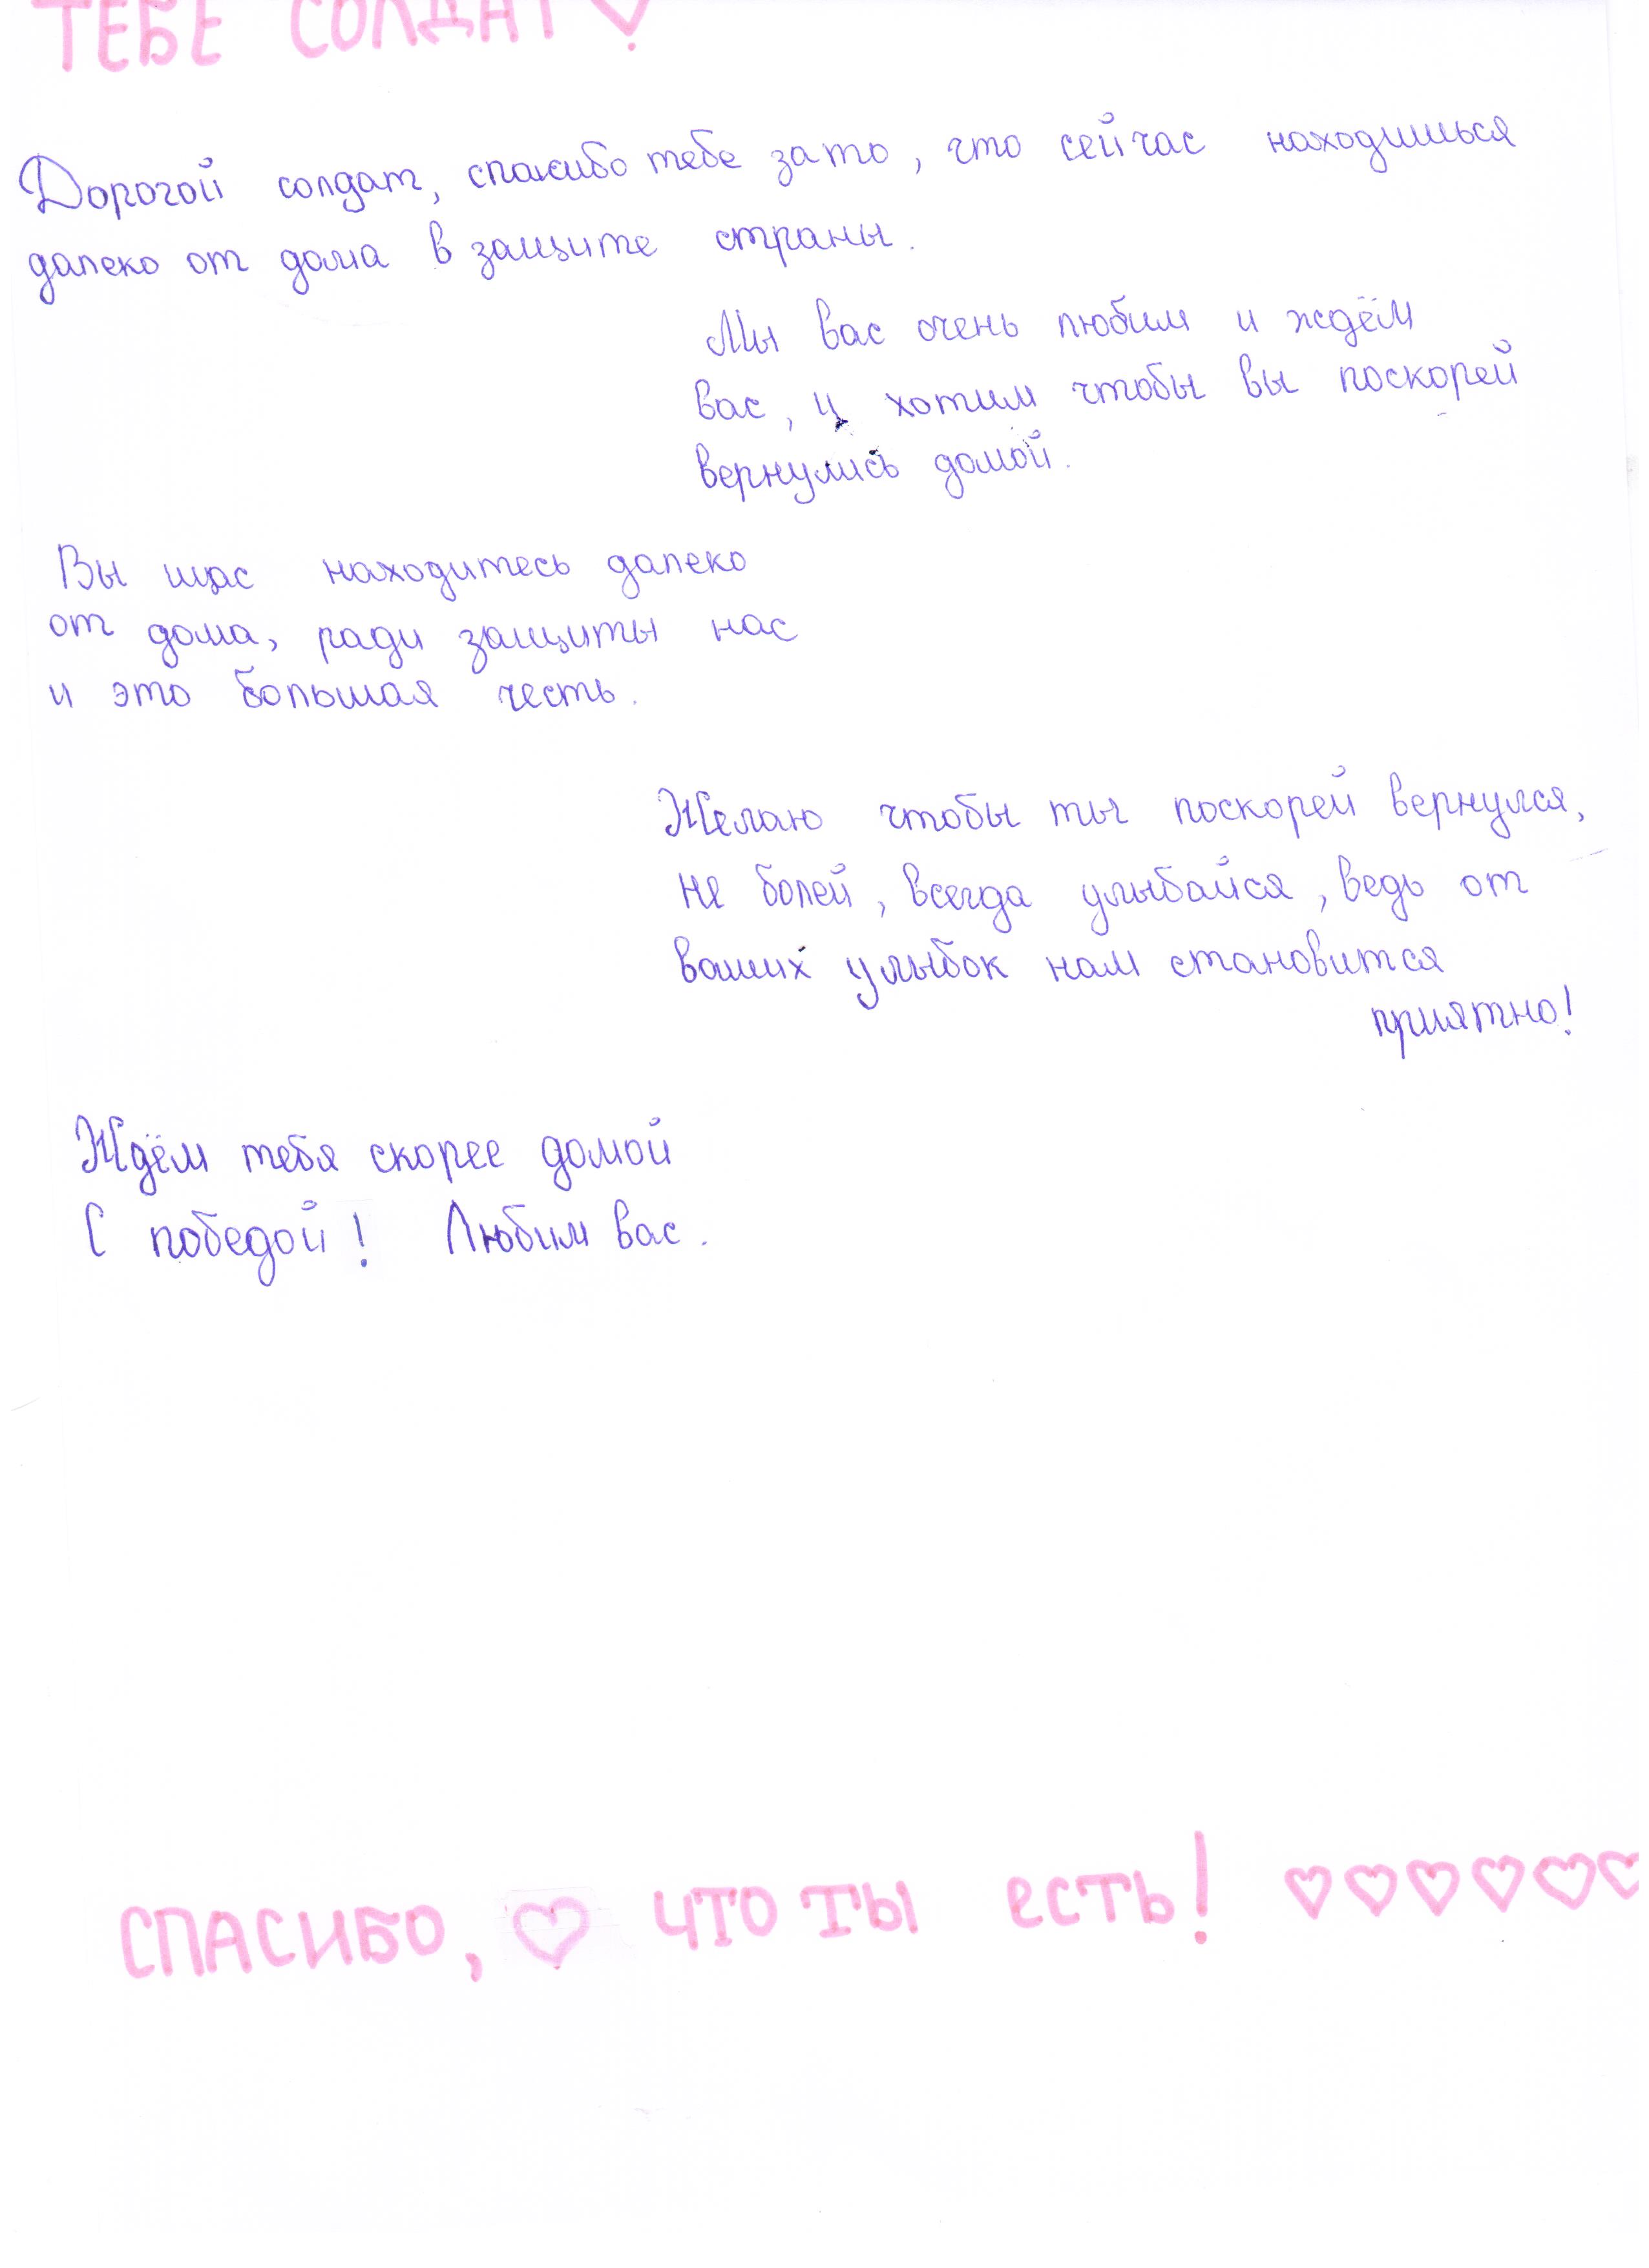 ТЕБЕ СОЛДАТ
Дорогой солдат, спасибо тебе зато, что сейчас находишься
далеко от дома в защите страны.
Мы вас очень любим и ждём
вас, и хотим чтобы вы поскорей
вернулись домой.
Вы щас находитесь далеко
от дома, ради защиты нас
и это большая честь.
Желаю чтобы ты поскорей вернулся,
не болей, всегда улыбайся, ведь от
ваших улыбок нам становится
приятно!
Ждём тебя скорее домой
С победой! Любим вас.
СПАСИБО, ♡ ЧТО ТЫ ЕСТЬ! ♡♡♡♡♡♡